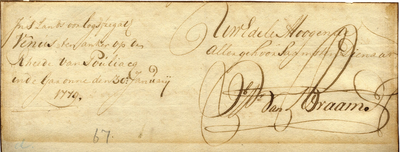 In's Lands oorlogschip
Venus ten anker op de
Rheede van Pouliacq
in de Garonne den 30 January
1779.
Uw Edele Hoogens
aller gehoorsaamste Dienaar
van Braam
67.